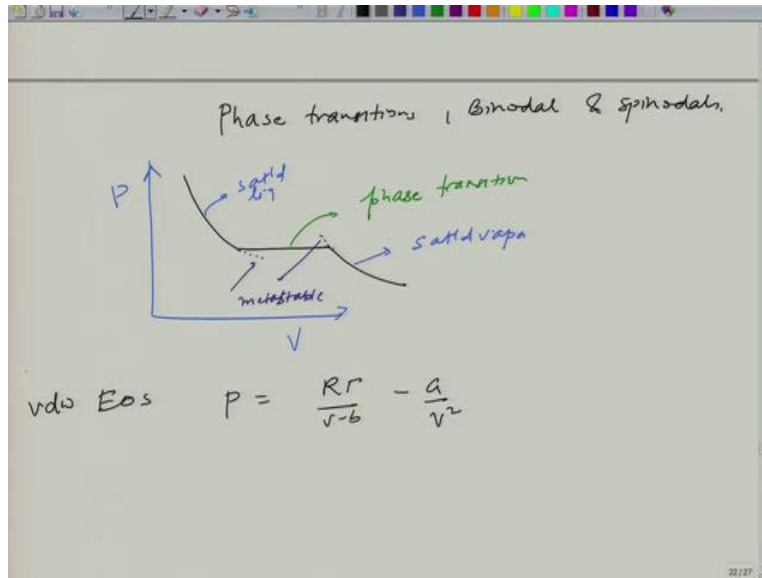 Phase transitions, Binodal & Spinodals.
P
satd
liq
phase transition
satd vapn
metastable
V
vdw EoS P = RT/(v-b) - a/v²
22/27